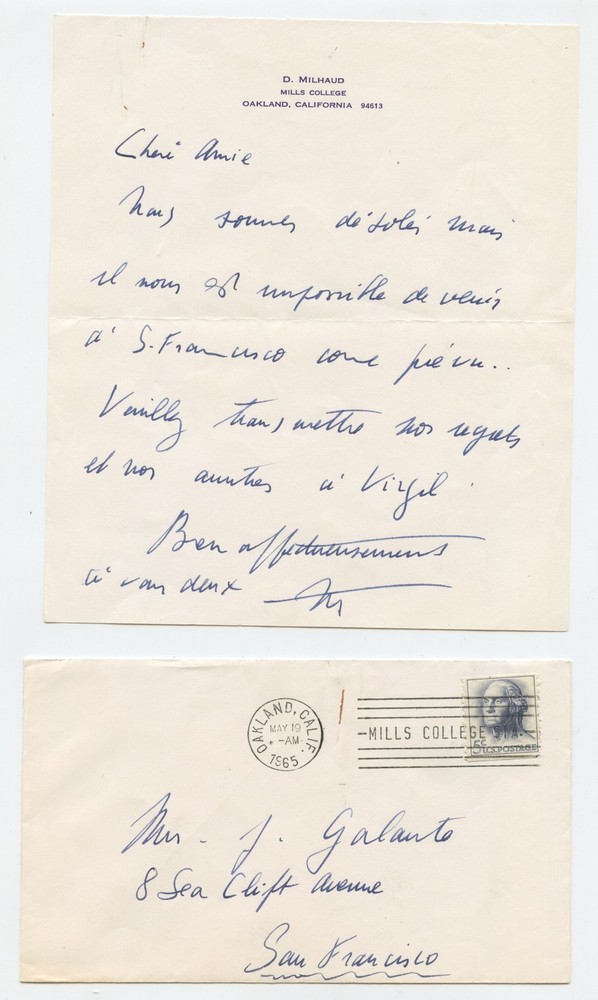 D. MILHAUD
MILLS COLLEGE
OAKLAND, CALIFORNIA 94613
Cheré Amie
Nous sommes désolés mais
il nous est impossible de venir
à S. Francisco come prévu..
Veuillez transmettre nos regrets
et nos amities à Virgil.
Bien affectueusement
à vous deux
OAKLAND, CALIF.
MAY 19
-AM
1965
MILLS COLLEGE STA.
5¢ U.S. POSTAGE
Mrs. J. Galante
8 Sea Clift Avenue
San Francisco